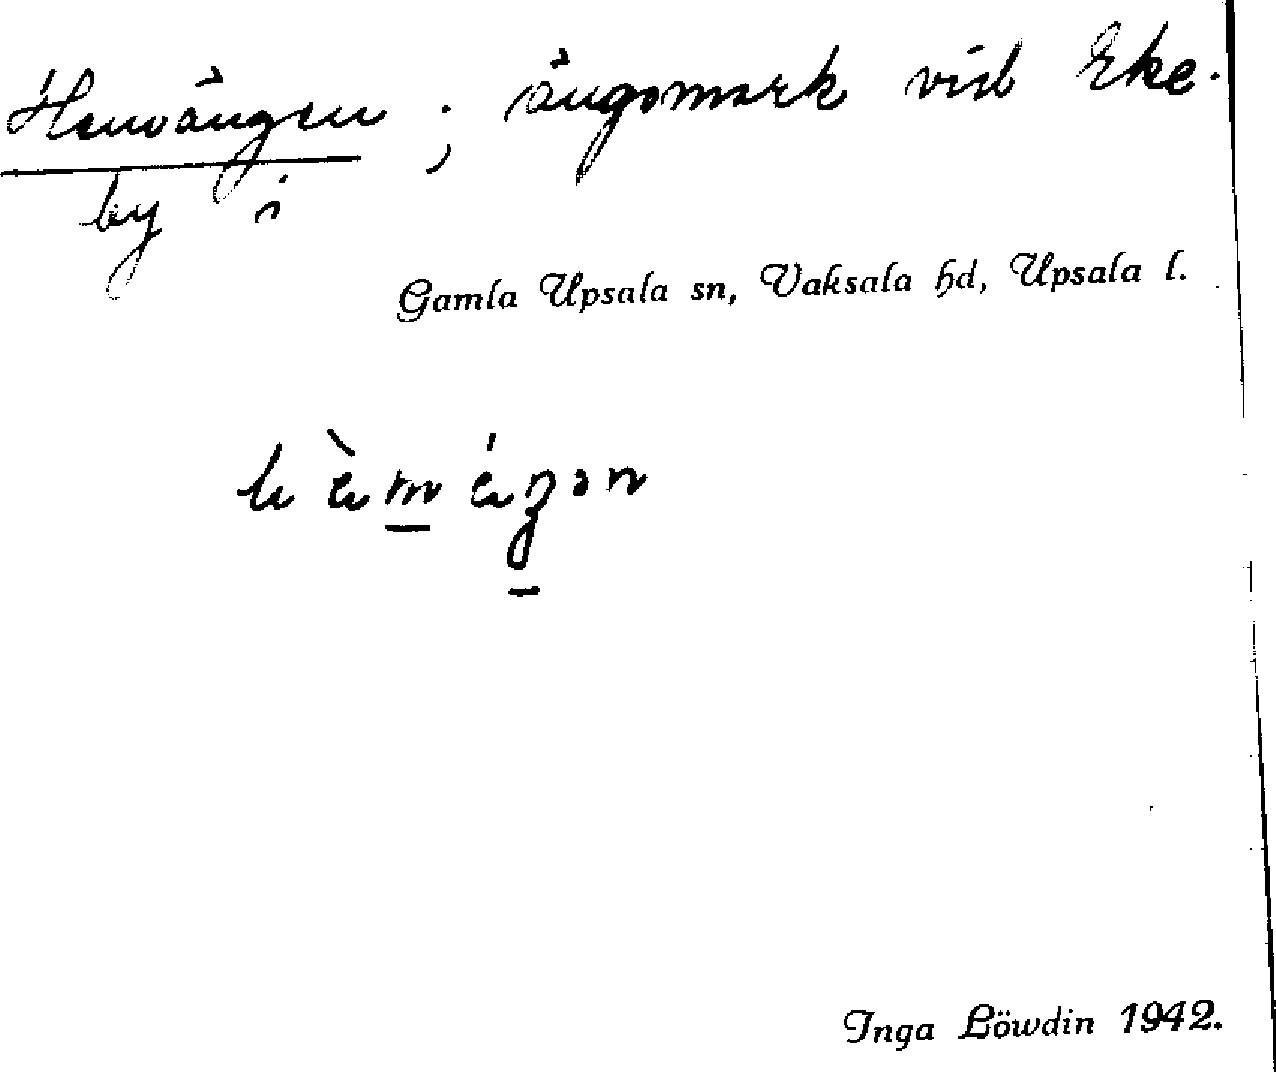 Hemängen ; ängsmark vid Eke-
by i
Gamla Upsala sn, Vaksala hd, Upsala l.
Inga Löwdin 1942.